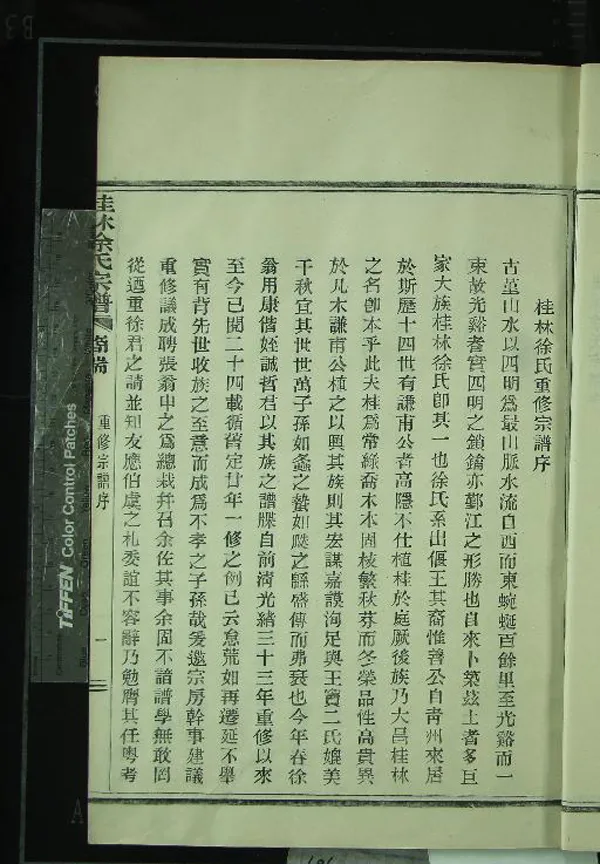 桂林徐氏重修宗譜序
古堇山水以四明為最山脈水流自西而東蜿蜒百餘里至光谿而一
束故光谿者實四明之鎖鑰亦鄞江之形勝也自來卜築茲土者多巨
家大族桂林徐氏卽其一也徐氏系出偃王其裔惟善公自青州來居
於斯歷十四世有謙甫公者高隱不仕植桂於庭厥後族乃大昌桂林
之名卽本乎此夫桂為常綠喬木本固枝繁秋芬而冬榮品性高貴異
於凡木謙甫公植之以興其族則其宏謀嘉謨洵足與王竇二氏媲美
千秋宜其世世萬子孫如螽之蟄如瓞之緜盛傳而弗衰也今年春徐
翁用康偕姪誠哲君以其族之譜牒自前淸光緒三十三年重修以來
至今已閱二十四載循舊定廿年一修之例已云怠荒如再遷延不舉
實有背先世收族之至意而成為不孝之子孫哉爰邀宗房幹事建議
重修議成聘張翁申之為總裁幷召余佐其事余固不諳譜學無敢罔
從迺重徐君之請並知友應伯虞之札委誼不容辭乃勉膺其任粵考
桂林徐氏宗譜
卷首
重修宗譜序
一
TIFFEN Color Control Patches